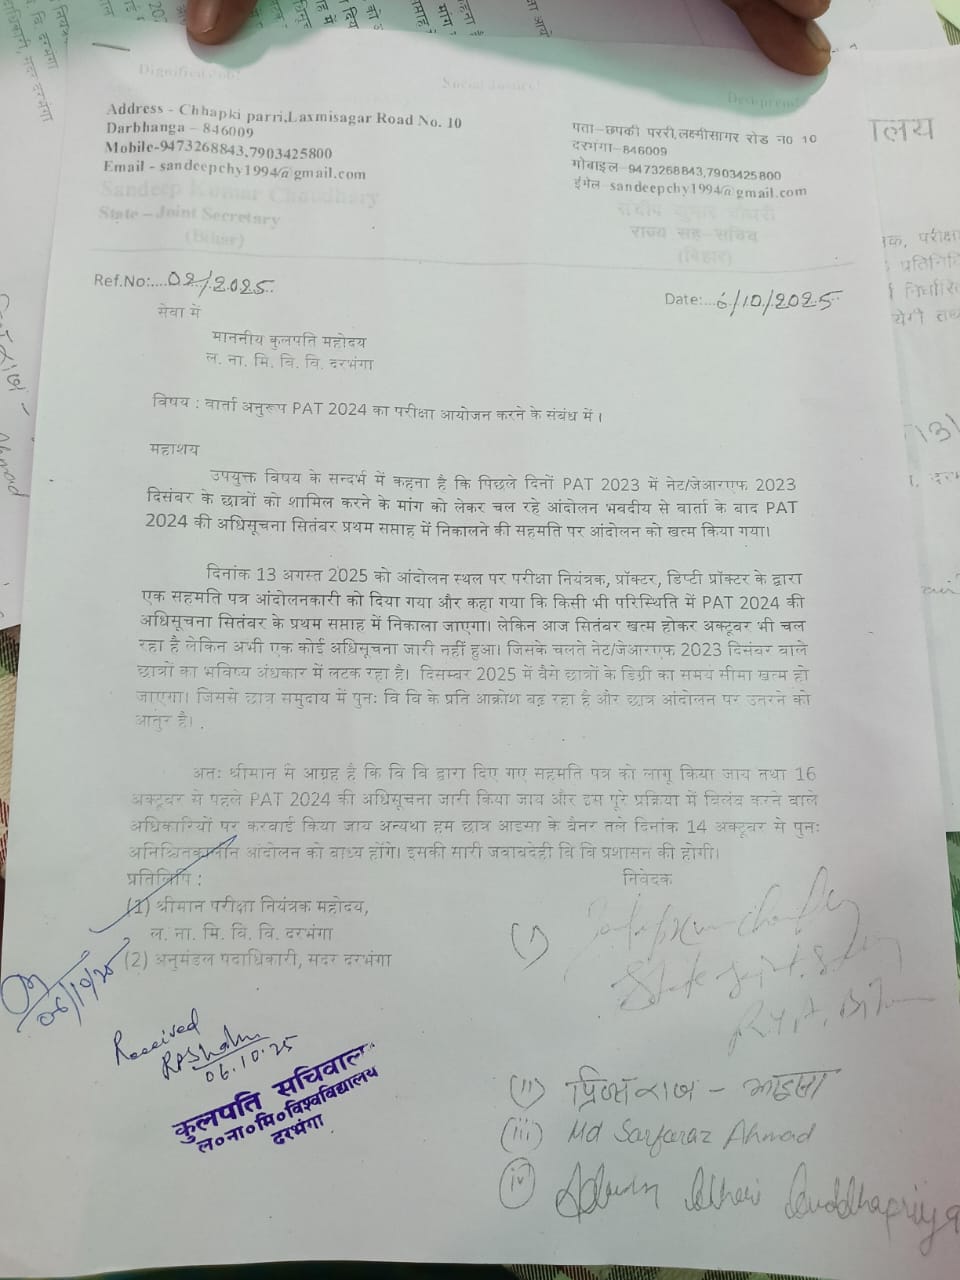 Dignified Job!
Social Justice!
Address - Chhapki parri,Laxmisagar Road No. 10
Darbhanga – 846009
Mobile-9473268843,7903425800
Email - sandeepchy1994@gmail.com
पता–छपकी पररी,लक्ष्मीसागर रोड न0 10
दरभंगा–846009
मोबाइल–9473268843,7903425800
ईमेल–sandeepchy1994@gmail.com
Sandeep Kumar Chaudhary
State – Joint Secretary
(Bihar)
संदीप कुमार चौधरी
राज्य सह–सचिव
(बिहार)
Ref.No:....02/2025
Date:...6/10/2025
सेवा में
माननीय कुलपति महोदय
ल. ना. मि. वि. वि. दरभंगा
विषय : वार्ता अनुरूप PAT 2024 का परीक्षा आयोजन करने के संबंध में ।
महाशय
उपयुक्त विषय के सन्दर्भ में कहना है कि पिछले दिनों PAT 2023 में नेट/जेआरएफ 2023
दिसंबर के छात्रों को शामिल करने के मांग को लेकर चल रहे आंदोलन भवदीय से वार्ता के बाद PAT
2024 की अधिसूचना सितंबर प्रथम सप्ताह में निकालने की सहमति पर आंदोलन को खत्म किया गया।
दिनांक 13 अगस्त 2025 को आंदोलन स्थल पर परीक्षा नियंत्रक, प्रॉक्टर, डिप्टी प्रॉक्टर के द्वारा
एक सहमति पत्र आंदोलनकारी को दिया गया और कहा गया कि किसी भी परिस्थिति में PAT 2024 की
अधिसूचना सितंबर के प्रथम सप्ताह में निकाला जाएगा। लेकिन आज सितंबर खत्म होकर अक्टूबर भी चल
रहा है लेकिन अभी एक कोई अधिसूचना जारी नहीं हुआ। जिसके चलते नेट/जेआरएफ 2023 दिसंबर वाले
छात्रों का भविष्य अंधकार में लटक रहा है। दिसम्बर 2025 में वैसे छात्रों के डिग्री का समय सीमा खत्म हो
जाएगा। जिससे छात्र समुदाय में पुन: वि वि के प्रति आक्रोश बढ़ रहा है और छात्र आंदोलन पर उतरने को
आतुर है। .
अत: श्रीमान से आग्रह है कि वि वि द्वारा दिए गए सहमति पत्र को लागू किया जाय तथा 16
अक्टूबर से पहले PAT 2024 की अधिसूचना जारी किया जाय और इस पूरे प्रक्रिया में विलंब करने वाले
अधिकारियों पर करवाई किया जाय अन्यथा हम छात्र आइसा के बैनर तले दिनांक 14 अक्टूबर से पुन:
अनिश्चितकालीन आंदोलन को बाध्य होंगे। इसकी सारी जवाबदेही वि वि प्रशासन की होगी।
प्रतिलिपि :
निवेदक
(1) श्रीमान परीक्षा नियंत्रक महोदय,
ल. ना. मि. वि. वि. दरभंगा
(2) अनुमंडल पदाधिकारी, सदर दरभंगा
(i)
State Joint. Secretary
R.Y.A. Bihar
06/10/25
Received
06.10.25
कुलपति सचिवालय
ल०ना०मि०विश्वविद्यालय
दरभंगा
(ii) प्रिंस राज – आइसा
(iii) Md Sarfaraz Ahmad
(iv) Buddhapriya